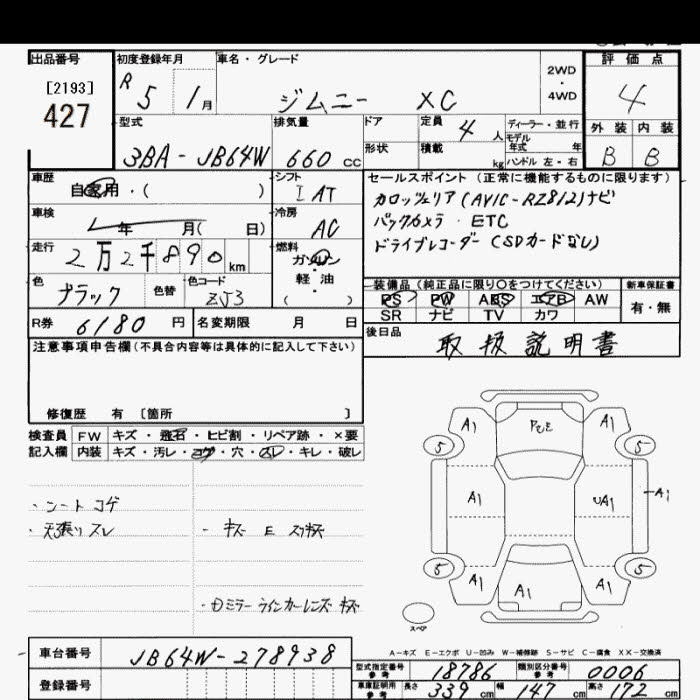 出品番号 初度登録年月 車名・グレード 評価点
[2193]
427
R 5 1月 ジムニー XC 2WD・4WD 4
型式 排気量 ドア 定員 4人 ディーラー・並行 外装 内装
モデル年式 年
3BA-JB64W 660cc 形状 積載 kg ハンドル 左・右 B B
車歴 シフト セールスポイント(正常に機能するものに限ります)
自家用・( ) I AT カロッツェリア(AVIC-RZ812)ナビ
車検 年 月( 日) 冷房 AC バックカメラ・ETC
走行 2万2千890km 燃料 ガソリン ドライブレコーダー(SDカードなし)
軽・油
( )
色 ブラック 色替 色コード ZJ3
装備品(純正品に限り○をつけてください) 新車保証書
PS PW ABS エアB AW 有・無
SR ナビ TV カワ
R券 6180円 名変期限 月 日
後日品 取扱説明書
注意事項申告欄(不具合内容等は具体的に記入して下さい)
修復歴 有 [箇所 ]
検査員 FW キズ・飛石・ヒビ割・リペア跡・×要
記入欄 内装 キズ・汚レ・コゲ・穴・スレ・キレ・破レ
・シートコゲ
・天張リスレ
・キズ E スリキズ
・ミラーウインカーレンズキズ
A1 A1
5 5
A1 UA1 A1
5 5
A1 A1 A1
スペア
A-キズ E-エクボ U-凹み W-補修跡 S-サビ C-腐食 XX-交換済
車台番号 JB64W-278938
登録番号
型式指定番号 参考 18786 類別区分番号 参考 0006
車庫証明用 参考 長さ 339cm 幅 147cm 高さ 172cm